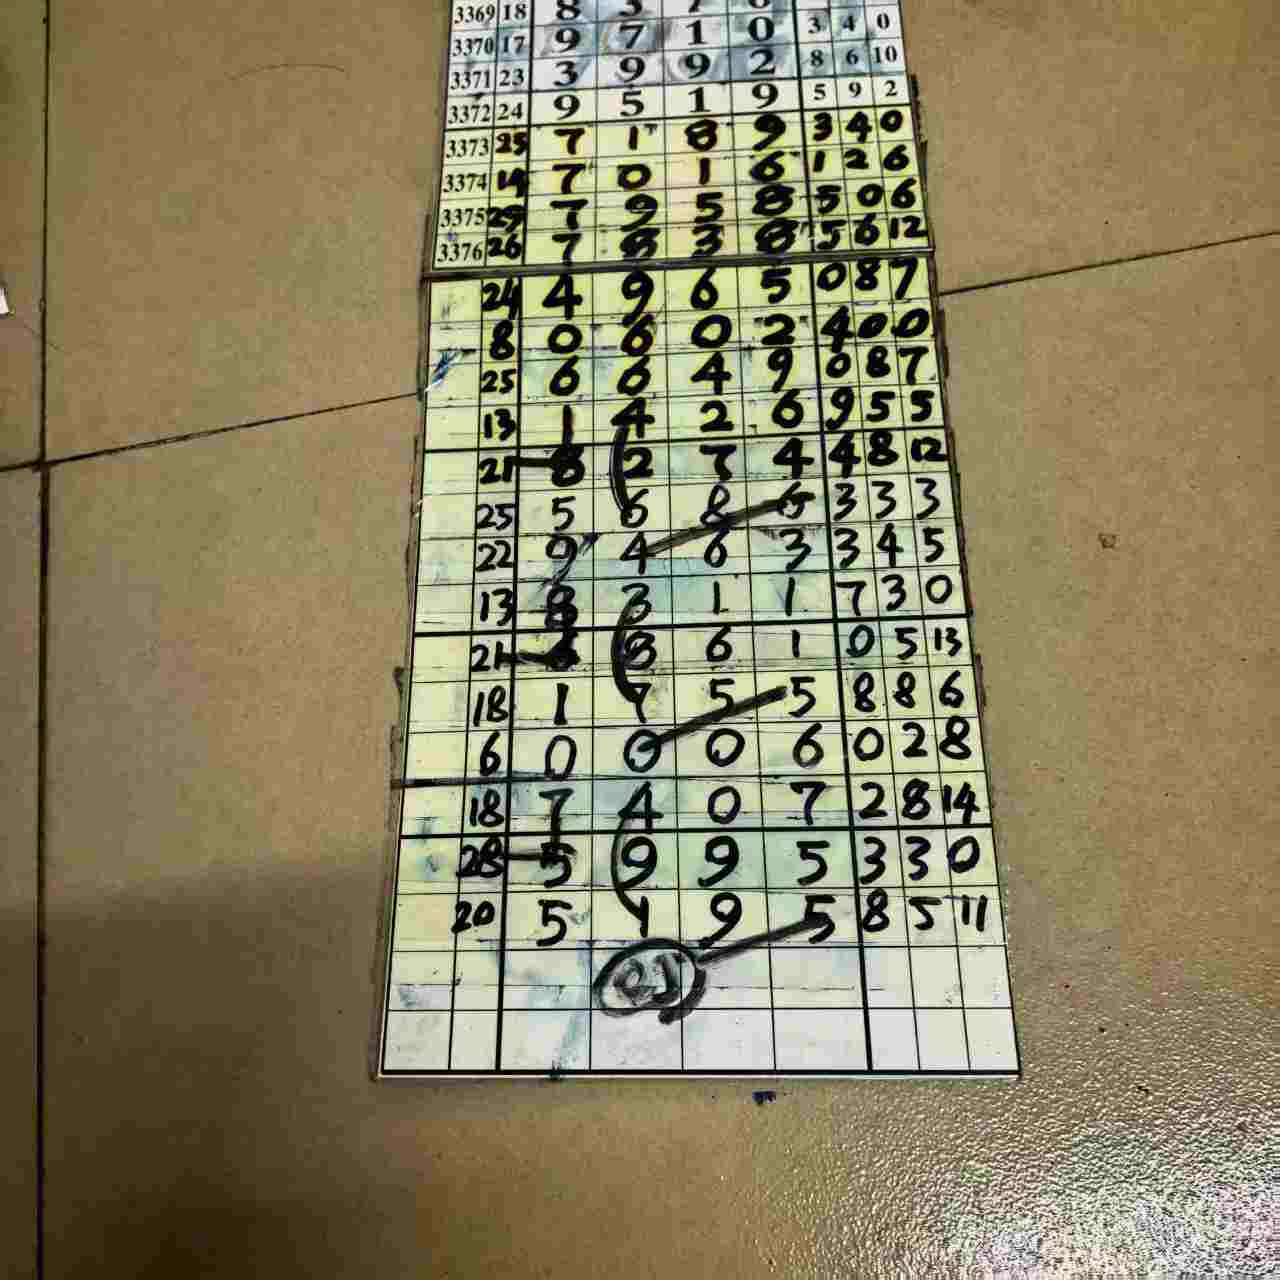 3369 18 8 3 7
3370 17 9 7 1 0 3 4 0
3371 23 3 9 9 2 8 6 10
3372 24 9 5 1 9 5 9 2
3373 25 7 1 8 9 3 4 0
3374 14 7 0 1 6 1 2 6
3375 29 7 9 5 8 5 0 6
3376 26 7 8 3 8 5 6 12
24 4 9 6 5 0 8 7
8 0 6 0 2 4 0 0
25 6 6 4 9 0 8 7
13 1 4 2 6 9 5 5
21 8 2 7 4 4 8 12
25 5 6 8 6 3 3 3
22 9 4 6 3 3 4 5
13 8 3 1 1 7 3 0
21 6 8 6 1 0 5 13
18 1 7 5 5 8 8 6
6 0 0 0 6 0 2 8
18 7 4 0 7 2 8 14
28 5 9 9 5 3 3 0
20 5 1 9 5 8 5 11